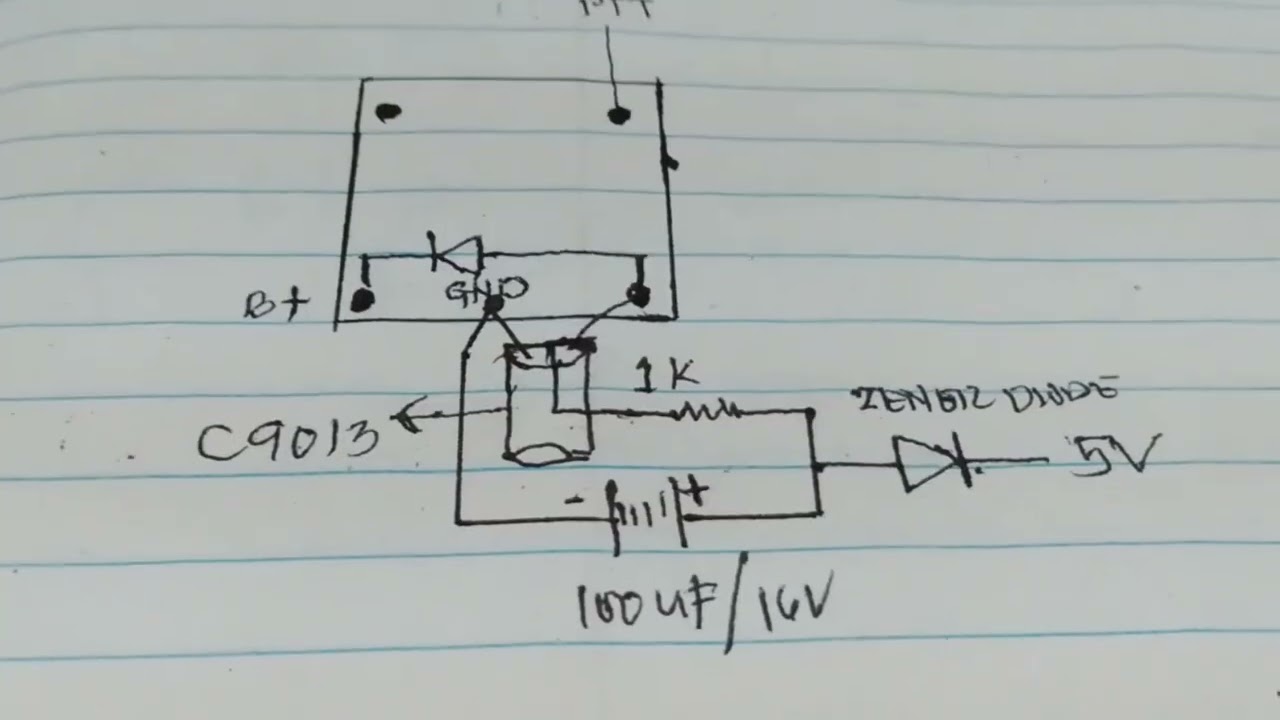 B+
GND
1K
ZENER DIODE
C9013
5V
-
+
100uF/16V